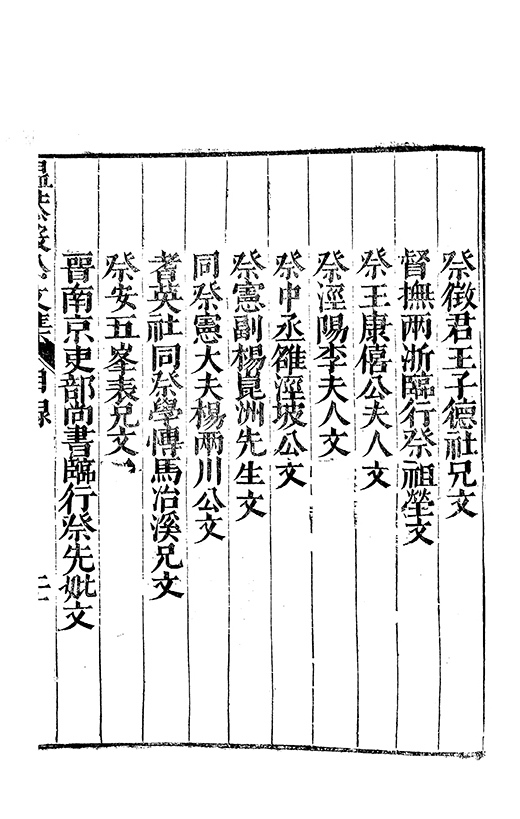 祭徵君王子德社兄文
督撫兩浙臨行祭祖塋文
祭王康僖公夫人文
祭涇陽李夫人文
祭中丞雒涇坡公文
祭憲副楊崑洲先生文
同祭憲大夫楊兩川公文
耆英社同祭學博馬冶溪兄文
祭安五峯表兄文
晉南京吏部尚書臨行祭先妣文
溫恭毅公文集 目録